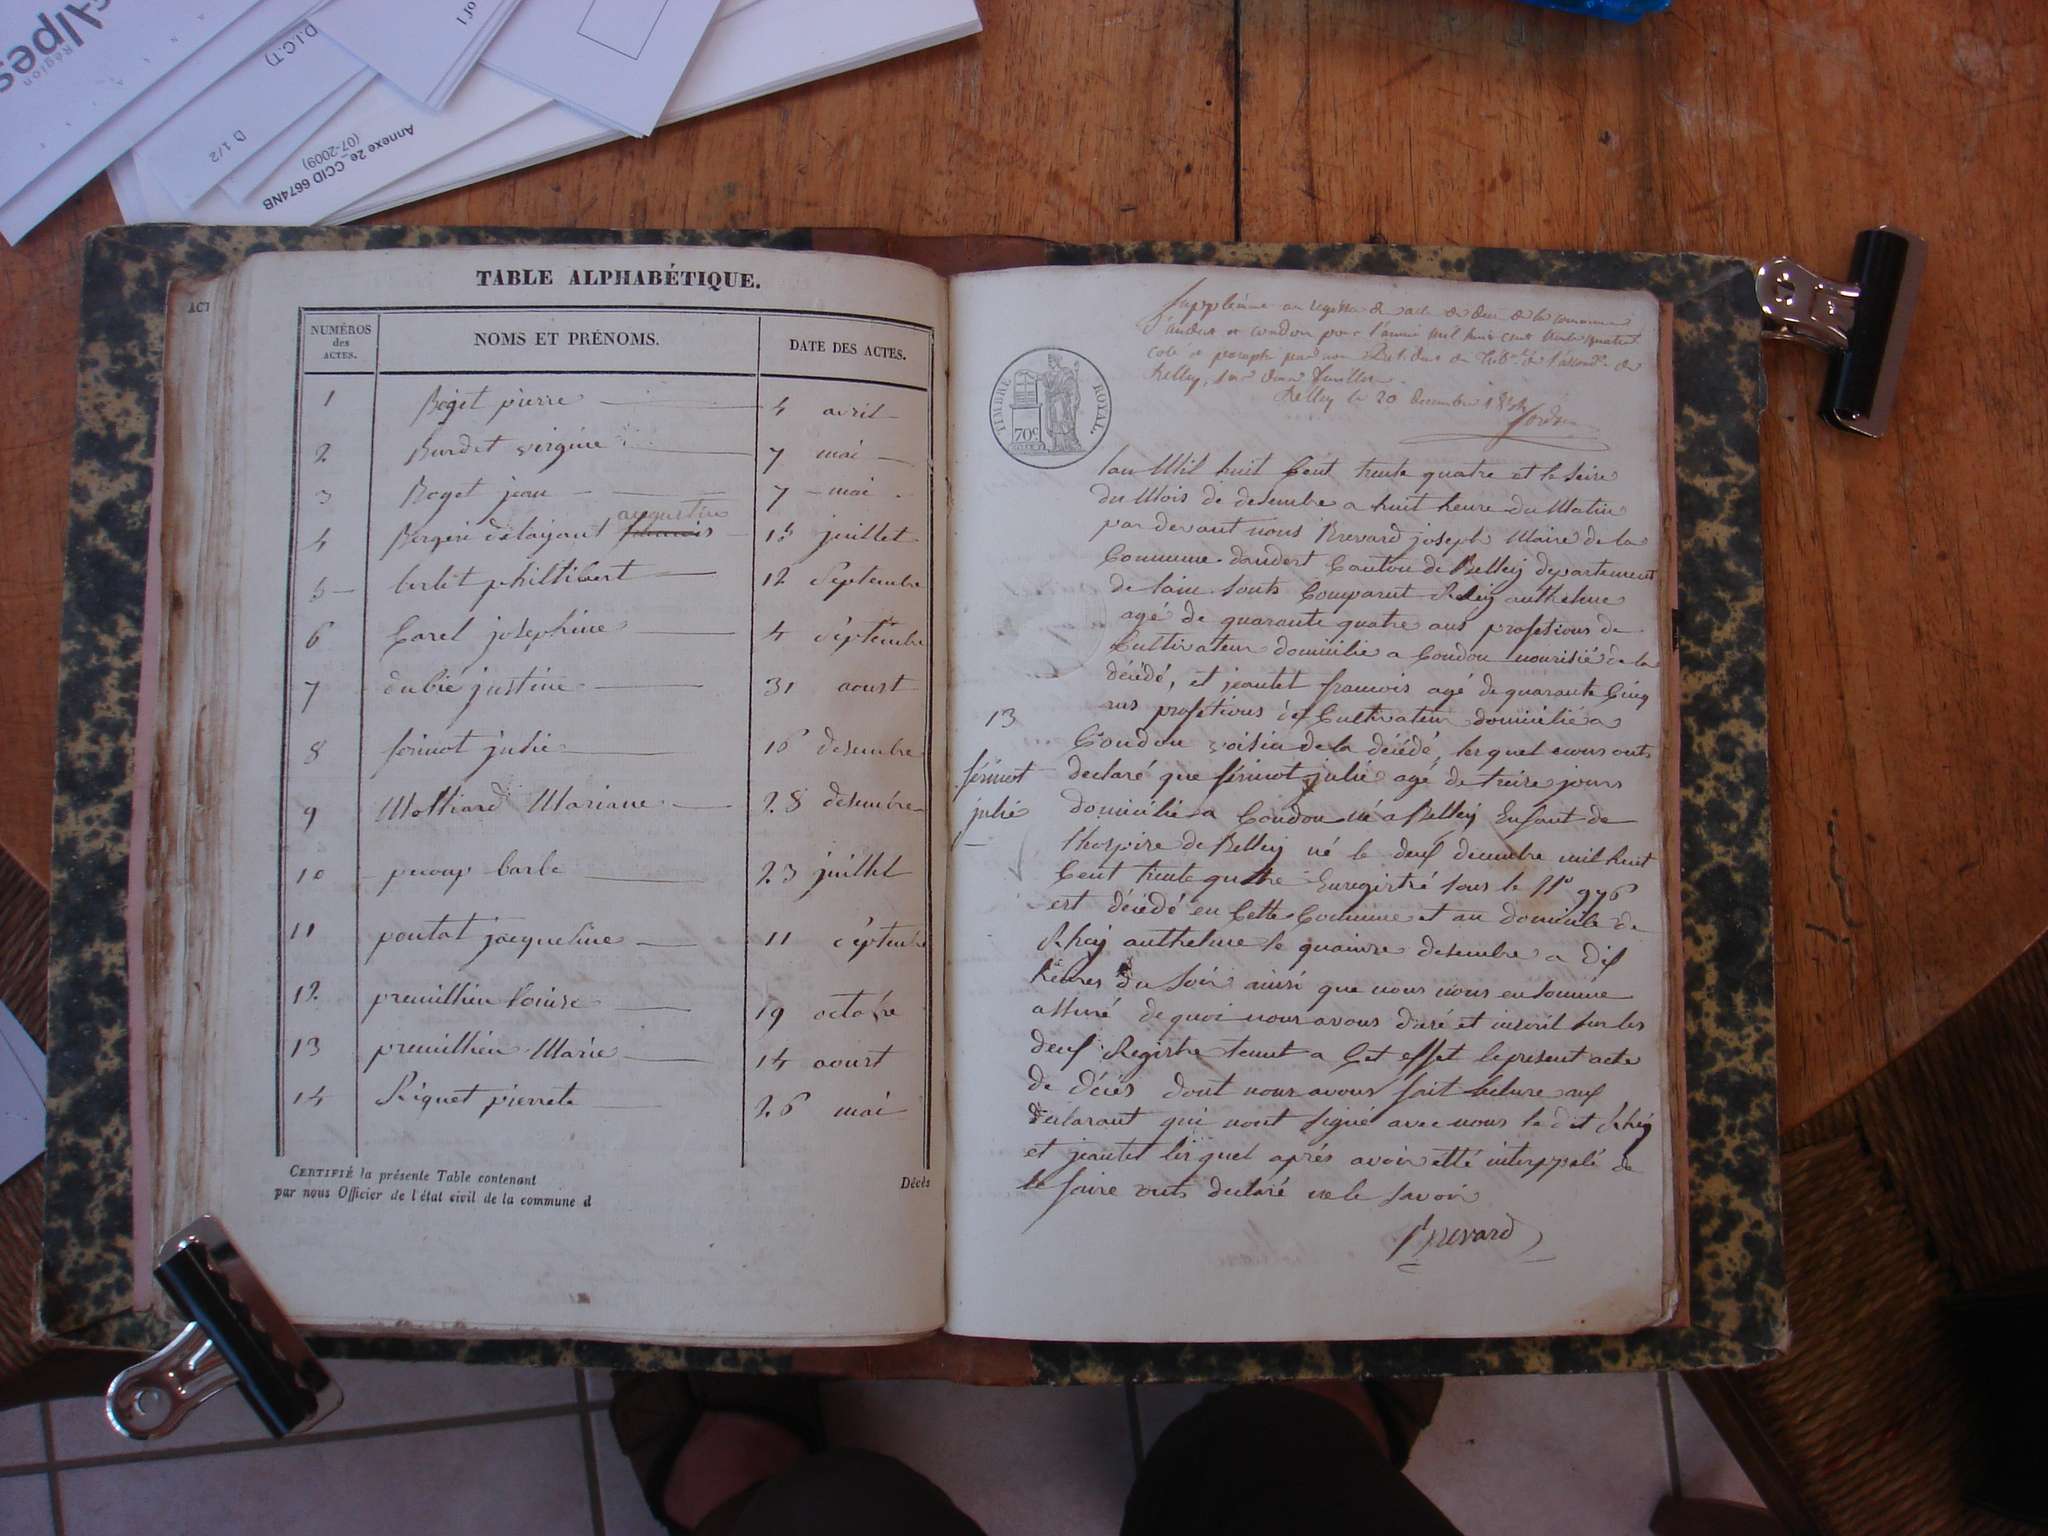 Alpes
Région
of 1
D.I.C.T)
D 1/2
Annexe 2e_CCID 6674NB
(07-2009)
ACT
TABLE ALPHABÉTIQUE.
NUMÉROS des ACTES. NOMS ET PRÉNOMS. DATE DES ACTES.
1 Roget pierre 4 avril
2 Burdet virginie 7 mai
3 Roget jean 7 mai
augustin
4 Bergeri délaizant 15 juillet
5 philibert 12 Septembre
6 Carel josephine 4 séptembre
7 dubié justine 31 aoust
8 férinot julie 16 desembre
9 Molliard Mariane 28 desembre
10 barbe 23 juillet
11 pontat jacqueline 11 séptembre
12 premillieu Louise 19 octobre
13 premillieu Marie 14 aoust
14 Riquet pierrete 26 mai
CERTIFIÉ la présente Table contenant Décès
par nous Officier de l'état civil de la commune d
Supplément au registre de acte de décès de la commune
d'andert et condon pour l'année mil huit cent trente quatre
coté et paraphé par nous Président du Tribal de l'arrondt de
Belley, sur deux feuilles.
Belley le 20 decembre 1834
TIMBRE ROYAL.
70c
lan Mil huit Cent trente quatre et le seize
du Mois de desembre a huit heure du Matin
par devant nous Brevard joseph Maire de la
Commune dandert Canton de Belley departement
de lain sonts Comparut Rhéy anthelme
agé de quarante quatre ans profetions de
Cultivateur domicilié a Condon nourisié de la
décédé, et jeantet francois agé de quarante Cinq
ans profetions de Cultivateur domicilié a
13
Condon voisin de la décédé, lesquel nous onts
férinot
declaré que férinot julie agé de treize jours
julie
domicilié a Condon né a Belley Enfant de
lhospice de Belley né le deux decembre mil huit
Cent trente quatre Enregistré sous le No 976
est décédé en Cette Commune et au domicile de
Rhey anthelme le quainze desembre a dix
heures du soir ainsi que nous nous en somme
assuré de quoi nous avons dresé et inscrit sur les
deux Registre tenut a Cet effet le present acte
de décés dont nous avons fait lecture aux
declarant qui nont signé avec nous le dit Rhéy
et jeantet lesquel aprés avoir etté interppelé de
le faire onts declaré ne le savoir
Brevard